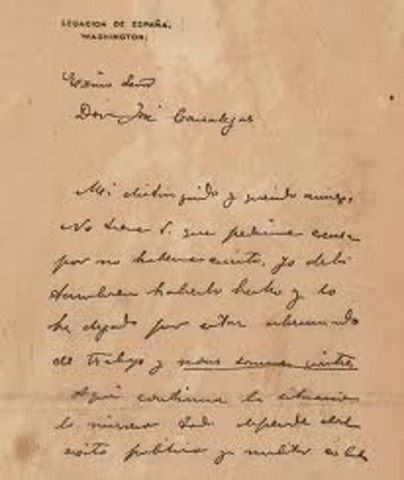 LEGACION DE ESPAÑA.
WASHINGTON.
Excmo Señor
Don José Canalejas
Mi distinguido y querido amigo:
No tiene V. que pedirme excusa
por no haberme escrito, yo debí
también haberlo hecho y lo
he dejado por estar abrumado
de trabajo y nous sommes quittes.
Aquí continua la situación
lo mismo. Todo depende del
éxito político y militar en Cuba